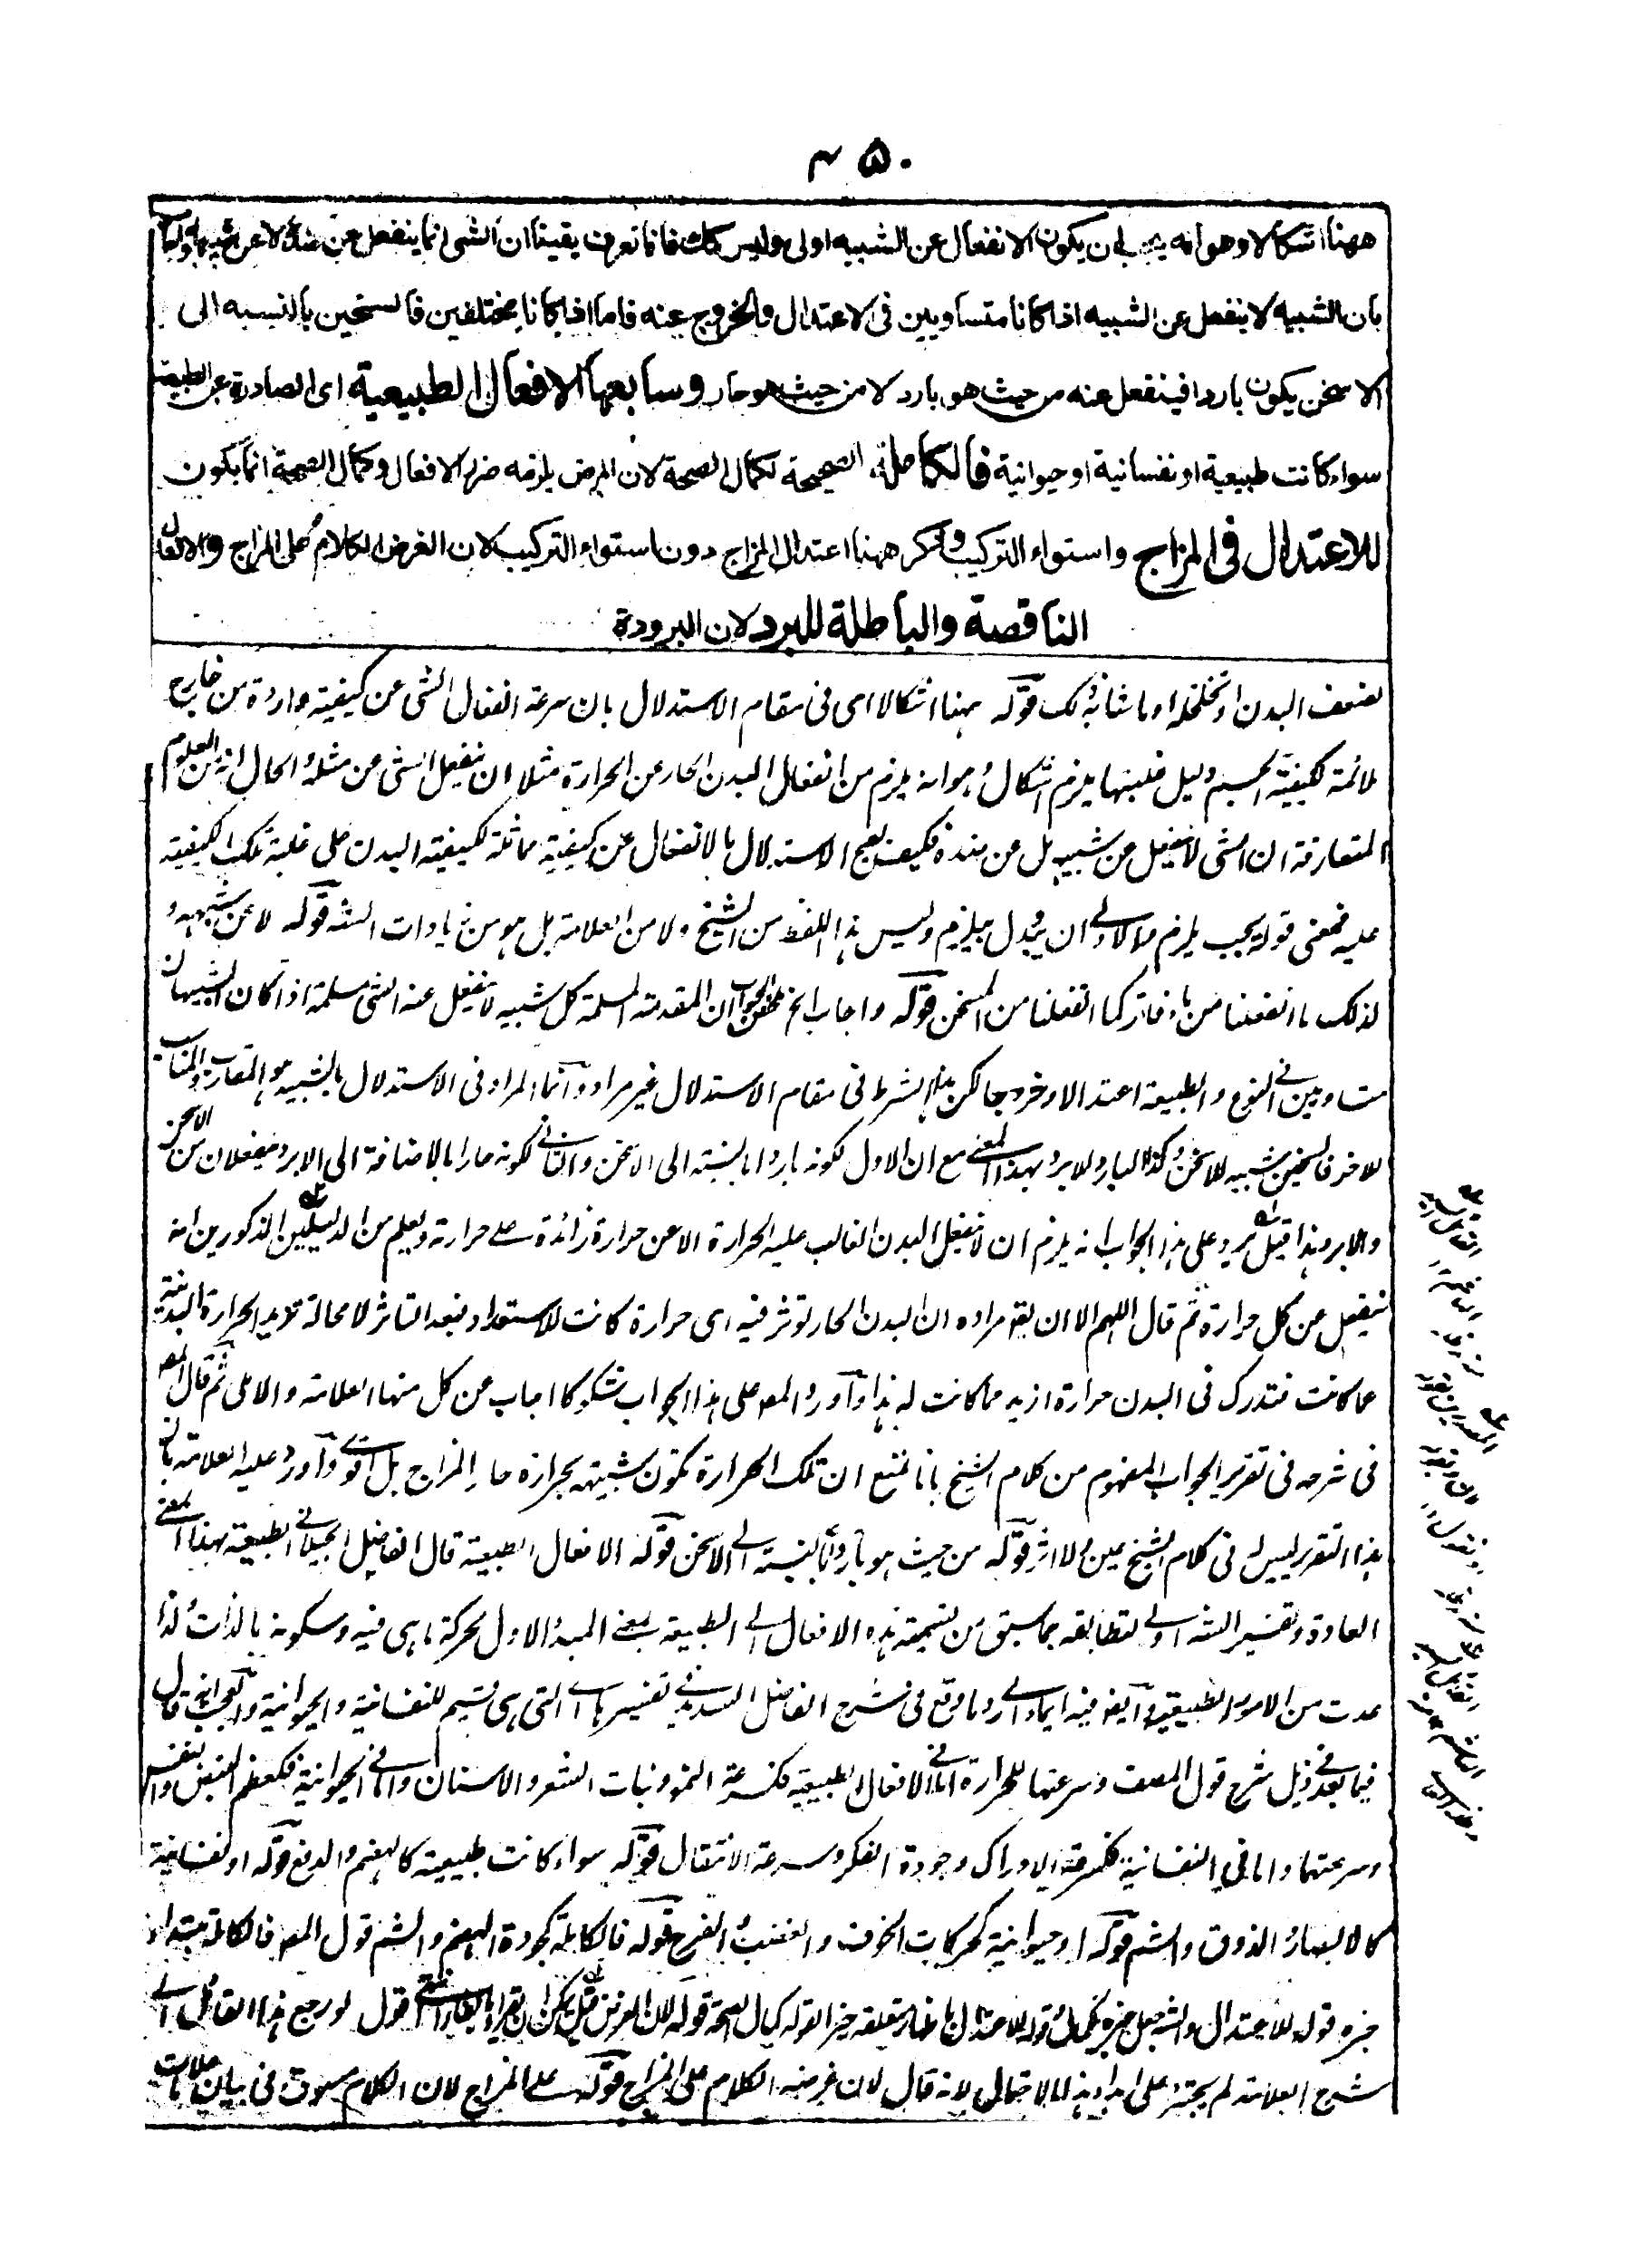 ٤٥٠
ههنا اشكالا وهو انه يجب ان يكون الانفعال عن الشبيه اولى وليس كذلك فانا نعرف يقينا ان الشى انما ينفعل عن ضده لا عن شبيهه واجاب
بان الشبيه لا ينفعل عن الشبيه اذا كانا متساويين فى الاعتدال والخروج عنه فاما اذا كانا مختلفين فالسخين بالنسبة الى
الاسخن يكون باردا فينفعل عنه من حيث هو بارد لا من حيث هو حار وسابعها الافعال الطبيعية اى الصادرة عن الطبيعة
سواء كانت طبيعية او نفسانية او حيوانية فالكاملة الصحيحة لكمال الصحة لان المرض يلزمه ضرر الافعال وكمال الصحة انما يكون
للاعتدال فى المزاج واستواء التركيب وذكر ههنا اعتدال المزاج دون استواء التركيب لان الغرض الكلام على المزاج والافعال
الناقصة والباطلة للبرد لان البرودة
لضعف البدن او تخلخله او ما شابه ذلك قوله ههنا اشكالا اى فى مقام الاستدلال بان سرعة انفعال الشى عن كيفية واردة من خارج
ملائمة لكيفية الجسم دليل غلبتها يلزم اشكال وهو انه يلزم من انفعال البدن الحار عن الحرارة مثلا ان ينفعل الشى عن مثله والحال انه من العلوم
المتعارفة ان الشى لا ينفعل عن شبيهه بل عن ضده فكيف يصح الاستدلال بالانفعال عن كيفية مماثلة لكيفية البدن على غلبة تلك الكيفية
عليه فمعنى قوله يجب يلزم والاولى ان يبدل بيلزم وليس هذا اللفظ من الشيخ ولا من العلامة بل هو من زيادات الشه قوله لا عن شبيهه و
لذلك ما انفعلنا من ماء فاتر كما انفعلنا من المسخن قوله واجاب الخ ملخص الجواب ان المقدمة المسلمة كل شبيه لا ينفعل عنه الشى مسلمة اذا كان الشبيهان
متساويين فى النوع والطبيعة اعتدالا وخروجا لكن هذا الشرط فى مقام الاستدلال غير مراد وانما المراد فى الاستدلال بالشبيه هو المتقارب والمناسب
للاخر فالسخين شبيه للاسخن وكذا البارد للابرد بهذا المعنى مع ان الاول لكونه باردا بالنسبة الى الاسخن والثانى لكونه حارا بالاضافة الى الابرد ينفعلان من الاسخن
والابرد هذا قيل يرد على هذا الجواب انه يلزم ان لا ينفعل البدن الغالب عليه الحرارة الا عن حرارة زائدة على حرارته ويعلم من الدليلين المذكورين انه
ينفعل عن كل حرارة ثم قال اللهم الا ان يقو مراده ان البدن الحار توثر فيه اى حرارة كانت للاستعداد فبعد التاثر لا محالة تزيد الحرارة البدنية
عما كانت فتدرك فى البدن حرارة ازيد مما كانت له هذا واورد المصه على هذا الجواب شكوكا اجاب عن كل منها العلامة والاملى ثم قال المصه
فى شرحه فى تقرير الجواب المفهوم من كلام الشيخ بانا نمنع ان تلك الحرارة تكون شبيهة بحرارة حار المزاج بل اقوى واورد عليه العلامة بان
هذا التقرير ليس له فى كلام الشيخ عين ولا اثر قوله من حيث هو بارد بالنسبة الى الاسخن قوله الافعال الطبيعية قال الفاضل الجيلانى الطبيعة بهذا المعنى
العادة وتفسير الشه اولى لتطابقه بما سبق من تسمية هذه الافعال الى الطبيعة بمعنى المبدأ الاول لحركة ما هى فيه وسكونه بالذات ولذا
عدت من الامور الطبيعية وايضا فيه ايماء الى رد ما وقع فى شرح الفاضل السديدى تفسيرها التى هى قسيم للنفسانية والحيوانية والعجب انه قال
فيما بعد فى ذيل شرح قول المصنف وسرعتها للحرارة اما فى الافعال الطبيعية فكسرعة النمو ونبات الشعر والاسنان واما فى الحيوانية فكعظم النبض والنفس
وسرعتهما واما فى النفسانية فكسرعة الادراك وجودة الفكر وسرعة الانتقال قوله سواء كانت طبيعية كالهضم والدفع قوله او نفسانية
كالابصار والذوق والشم قوله او حيوانية كحركات الخوف والغضب والفرح قوله فالكاملة كجودة الهضم والشم قول المصه فالكاملة مبتدأ
خبره قوله للاعتدال والشه جعل خبره لكمال قوله للاعتدال باظهار متعلقه خبرا لقوله كمال الصحة قوله لان الغرض قيل يمكن ان يقرأ اقول لو رجع هذا القائل الى
شرح العلامة لم يجترء على ايراد هذا الاحتمال لانه قال لان غرضه الكلام على المزاج قوله على المزاج لان الكلام مسوق فى بيان علامات